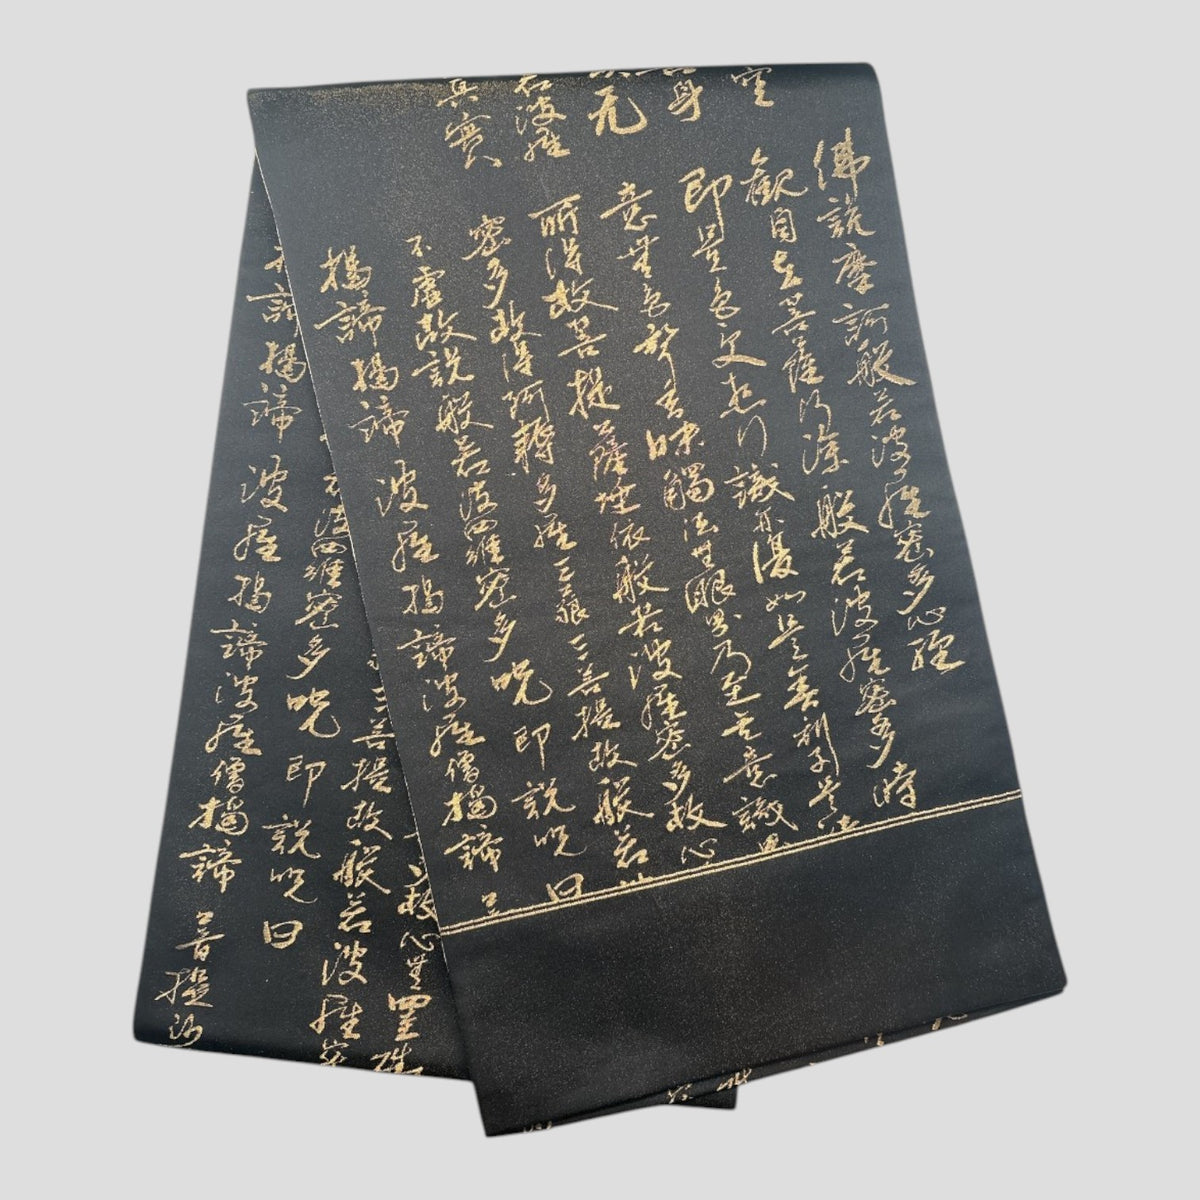 空
佛説摩訶般若波羅蜜多心経
観自在菩薩行深般若波羅蜜多時
身
即是色受想行識亦復如是舎利子是
无
意無色聲香味觸法無眼界乃至無意識
若波羅
所得故菩提薩埵依般若波羅蜜多故心
真實
密多故得阿耨多羅三藐三菩提故般若
不虚故説般若波羅蜜多呪即説呪曰
揭諦揭諦波羅揭諦波羅僧揭諦
故心無罣
三菩提故般若波羅
波羅蜜多呪即説呪曰
諦揭諦波羅揭諦波羅僧揭諦菩提